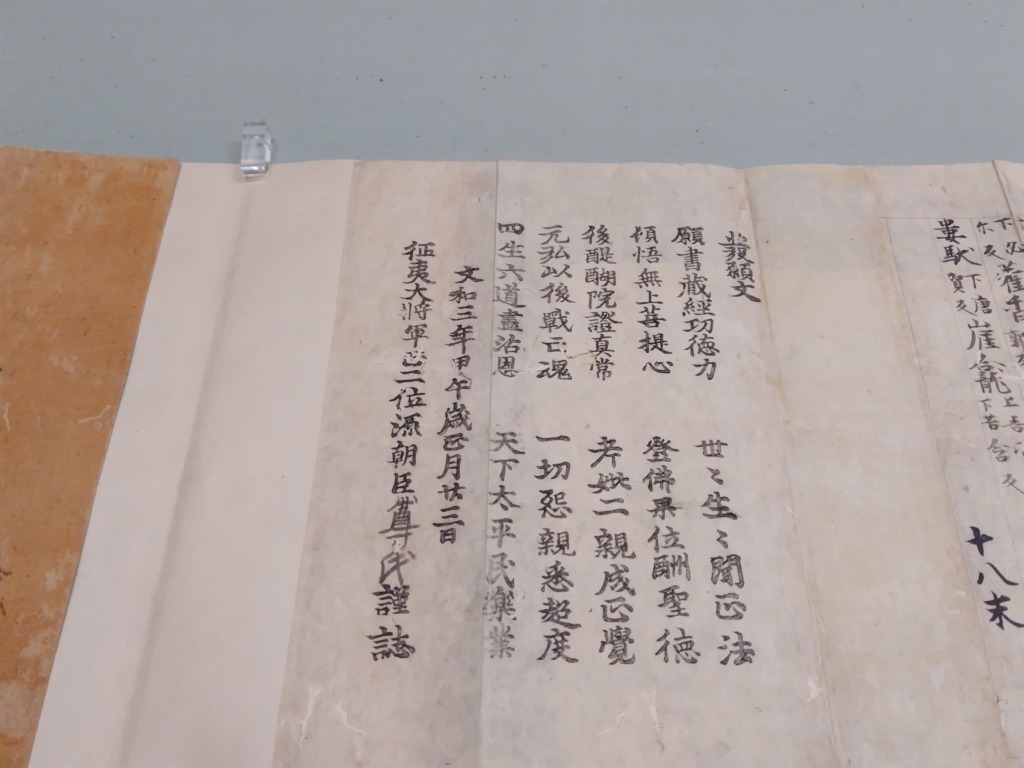 發願文
願書蔵經功徳力　世〻生〻聞正法
頓悟無上菩提心　登佛果位酬聖徳
後醍醐院證真常　考妣二親成正覺
元弘以後戰亡魂　一切怨親悉超度
四生六道盡沾恩　天下太平民樂業
文和三年甲午歳正月廿三日
征夷大將軍正二位源朝臣尊氏謹誌
十八末